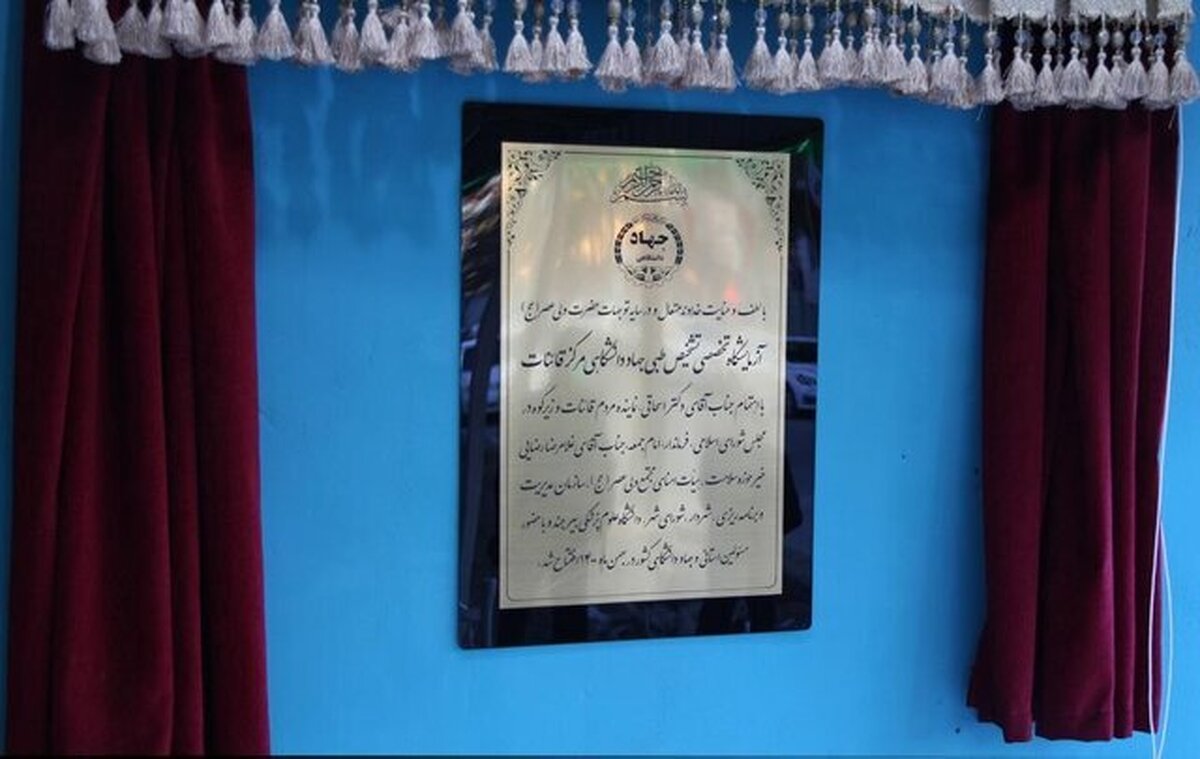 بسم الله الرحمن الرحیم
جهاد
دانشگاهی
با لطف و عنایت خداوند متعال و در سایه توجهات حضرت ولی عصر (عج)
آزمایشگاه تخصصی تشخیص طبی جهاد دانشگاهی مرکز قائنات
با اهتمام جناب آقای دکتر اسحاقی، نماینده مردم قائنات و زیرکوه در
مجلس شورای اسلامی، فرماندار، امام جمعه، جناب آقای غلامرضا رضایی
خیر حوزه سلامت، هیات امنای مجتمع ولی عصر (عج)، سازمان مدیریت
و برنامه ریزی، شهردار، شورای شهر، دانشگاه علوم پزشکی بیرجند و با حضور
مسئولین استانی و جهاد دانشگاهی کشور در بهمن ماه ۱۴۰۰ افتتاح شد.